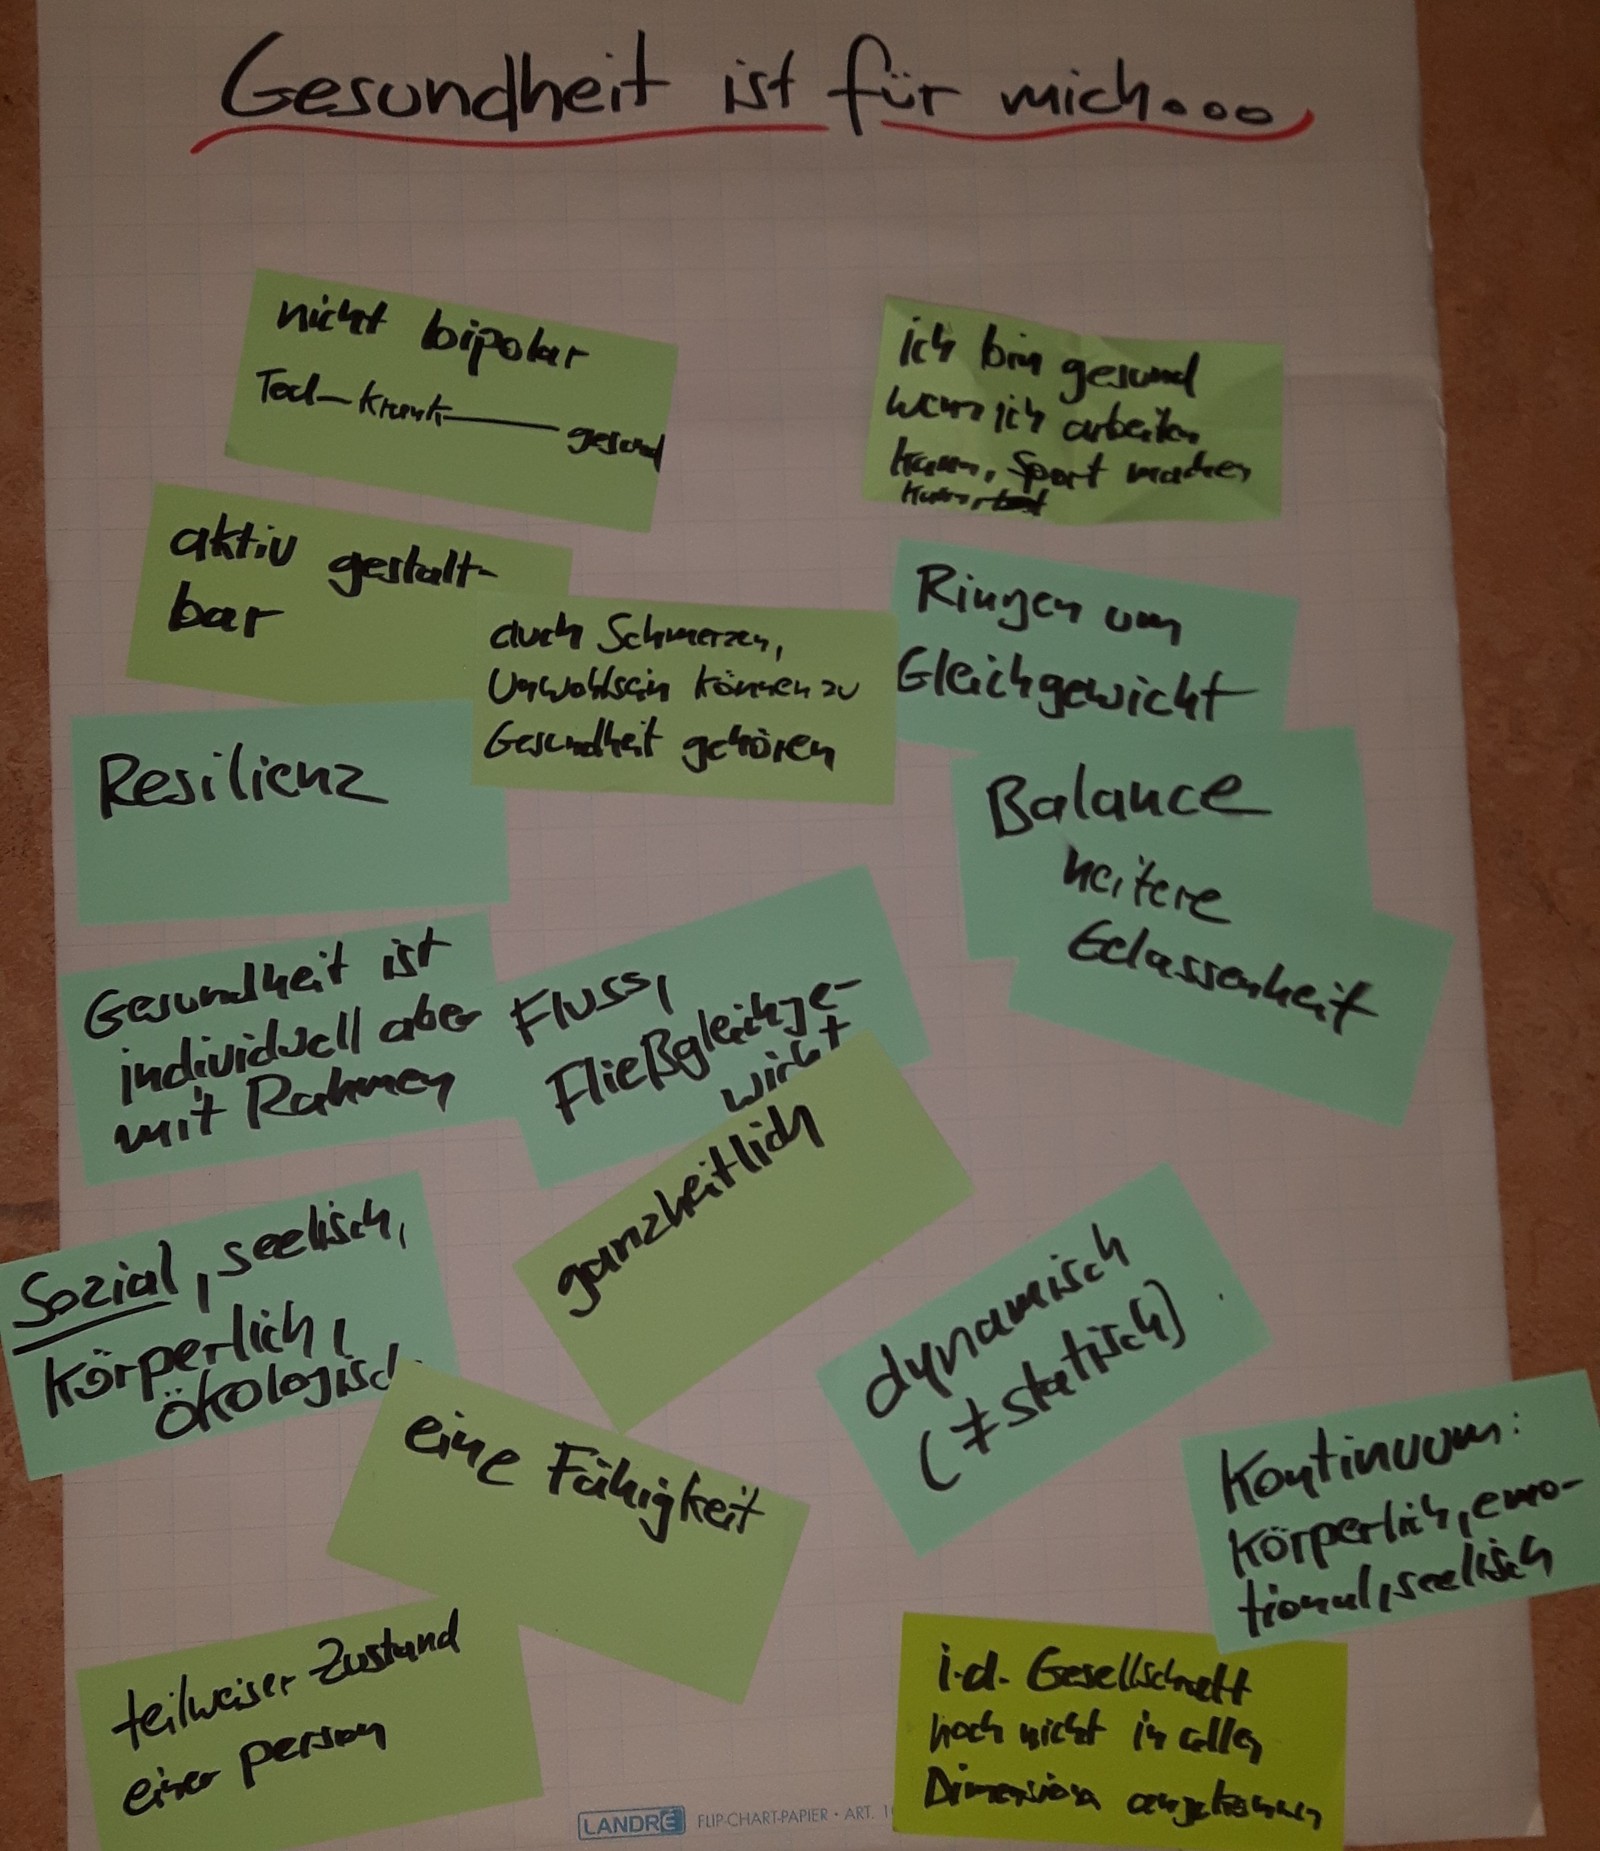 Gesundheit ist für mich...
nicht bipolar
Tod-krank gesund
ich bin gesund
wenn ich arbeiten
kann, Sport machen
kann,
aktiv gestalt-
bar
auch Schmerzen,
Unwohlsein können zu
Gesundheit gehören
Ringen um
Gleichgewicht
Resilienz
Balance
heitere
Gelassenheit
Gesundheit ist
individuell aber
mit Rahmen
Fluss,
Fließgleichge-
wicht
ganzheitlich
Sozial, seelisch,
körperlich,
ökologisch
dynamisch
(≠statisch)
eine Fähigkeit
Kontinuum:
körperlich, emo-
tional, seelisch
teilweiser Zustand
einer person
i.d. Gesellschaft
noch nicht in allen
Dimension angekommen
LANDRÉ FLIP-CHART-PAPIER • ART. 1